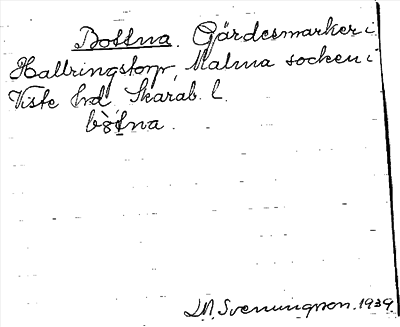 Bottna. Gärdesmarker i
Hallringstorp, Malma socken i
Viste hrd Skarab. l.
bòtna.
D.M. Svenningson. 1939